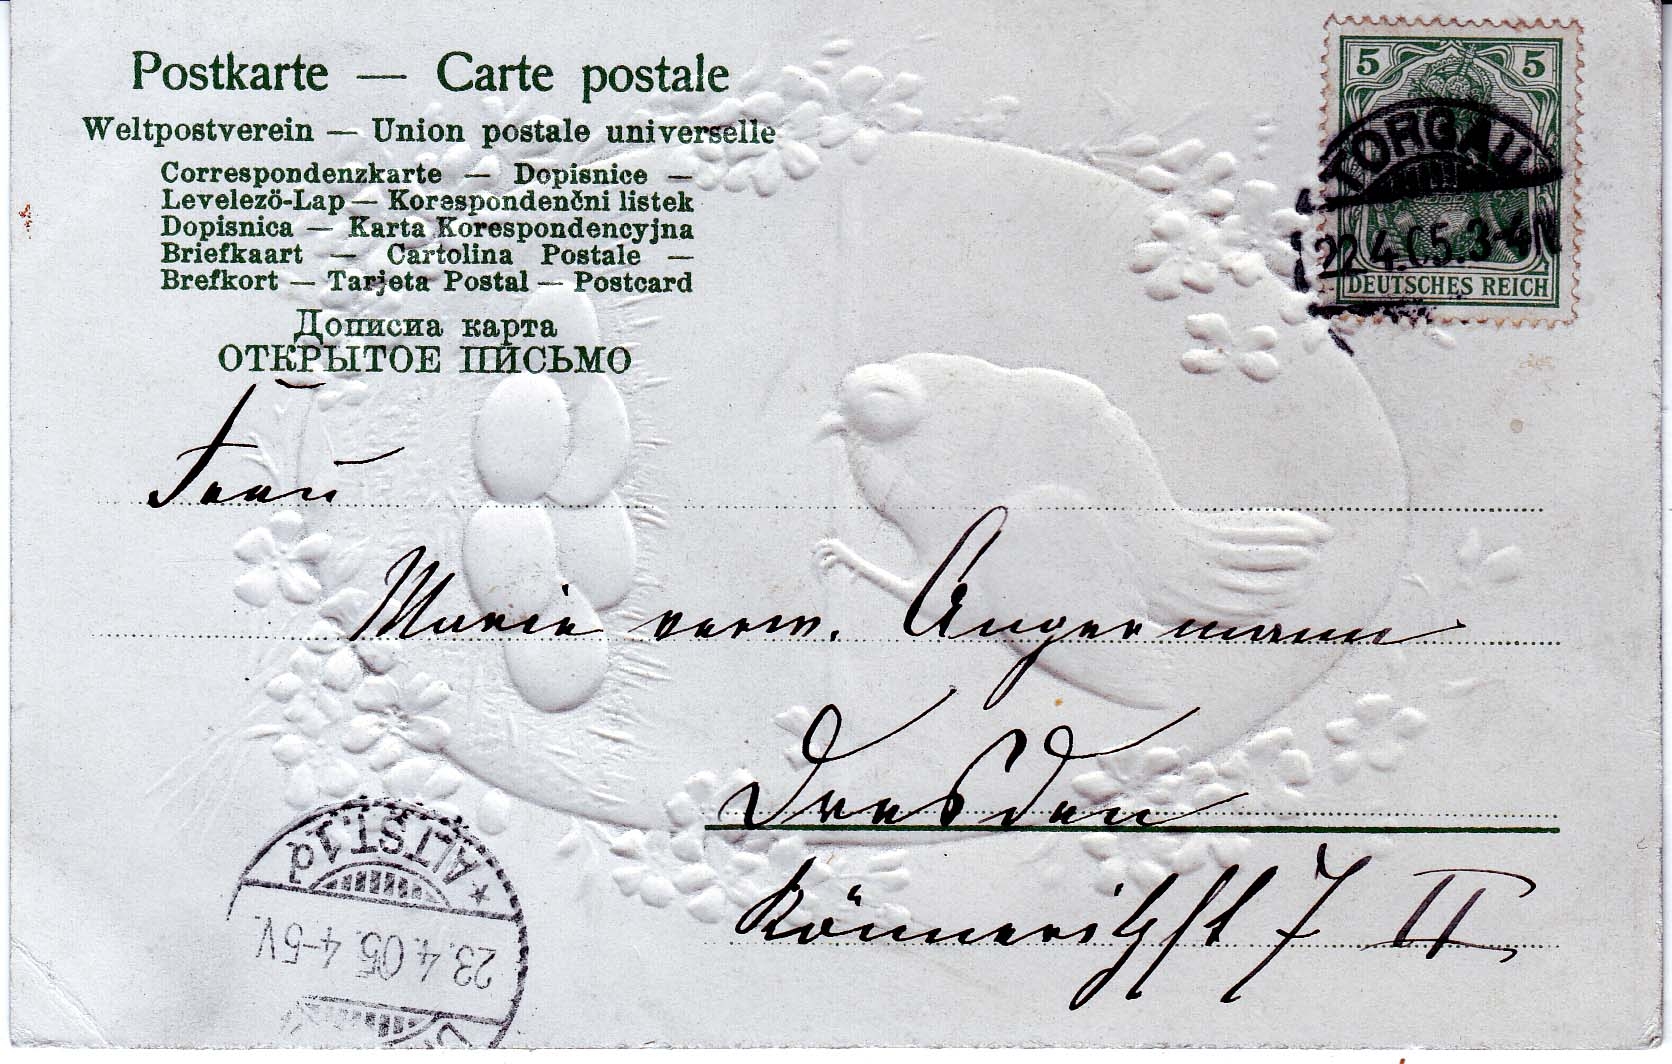 Postkarte — Carte postale
Weltpostverein — Union postale universelle
Correspondenzkarte — Dopisnice —
Levelező-Lap — Korespondenčni listek
Dopisnica — Karta Korespondencyjna
Briefkaart — Cartolina Postale —
Brefkort — Tarjeta Postal — Postcard
Дописна карта
ОТКРЫТОЕ ПИСЬМО
5 5
DEUTSCHES REICH
TORGAU
22.4.05.3-4N
Frau
Marie verw. Angermann
Dresden
Könneritzst 7 II
* ALTST.1d
23.4.05.4-5V.